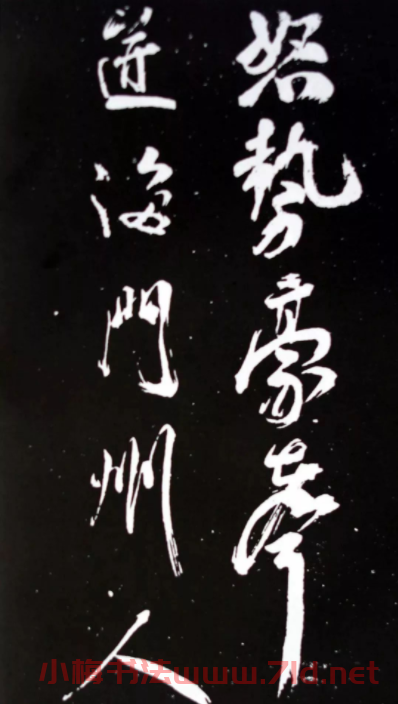 怒勢豪聲
迸海門州人
小梅书法www.7ld.net